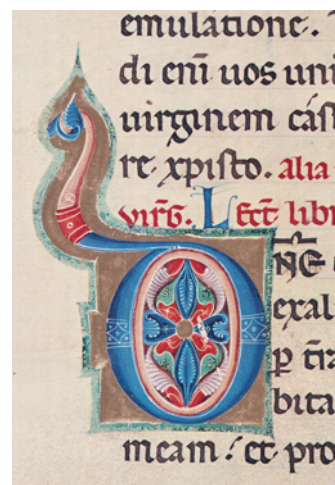 emulatione.
di eni̅ uos uni
uirginem cast
re xpisto. alia
uirg̅. Lect̅ libr
D
ne̅
exal
ꝑ t̅ra
bita
meam : et pro